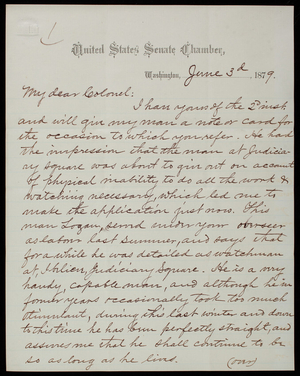 United States Senate Chamber,
Washington, June 3d, 1879.
My dear Colonel:
I have yours of the 2d inst
and will give my man a note or card for
the occasion to which you refer. He had
the impression that the man at Judicia-
ry Square was about to give out on account
of physical inability to do all the work &
watching necessary, which led me to
make the application just now. This
man Logan, served under your
as labor last summer, and says that
for a while he was detailed as watchman
at Judiciary Square. He is a very
handy, capable man, and although he in
former years occasionally took too much
stimulant, during this last winter and down
to this time he has been perfectly straight, and
assures me that he shall continue to be
so as long as he lives.
(over)